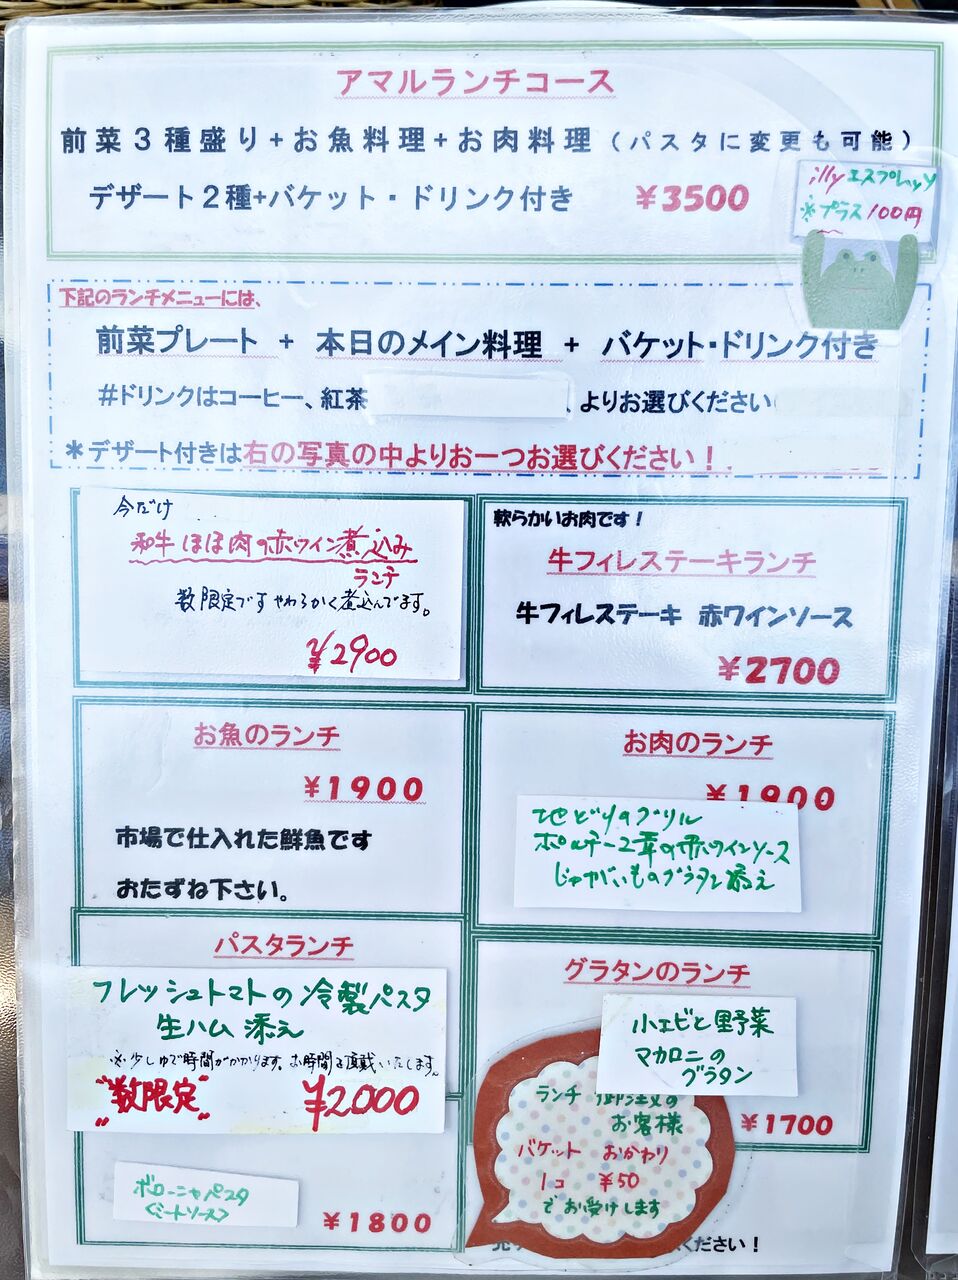 アマルランチコース
前菜3種盛り+お魚料理+お肉料理（パスタに変更も可能）
デザート2種+バケット・ドリンク付き ￥3500
illy エスプレッソ
※プラス100円
下記のランチメニューには、
前菜プレート + 本日のメイン料理 + バケット・ドリンク付き
#ドリンクはコーヒー、紅茶 、よりお選びください
*デザート付きは右の写真の中よりお一つお選びください！
今だけ
和牛ほほ肉の赤ワイン煮込み
ランチ
数限定です やわらかく煮込んでます。
￥2900
軟らかいお肉です！
牛フィレステーキランチ
牛フィレステーキ 赤ワインソース
￥2700
お魚のランチ
￥1900
市場で仕入れた鮮魚です
おたずね下さい。
お肉のランチ
￥1900
地どりのグリル
ポルチーニ茸の赤ワインソース
じゃがいものグラタン添え
パスタランチ
フレッシュトマトの冷製パスタ
生ハム添え
※少しゆで時間がかかります。お時間を頂戴いたします。
"数限定" ￥2000
ボローニャパスタ
<ミートソース>
￥1800
グラタンのランチ
小エビと野菜
マカロニの
グラタン
￥1700
ランチ 御注文の
お客様
バケット おかわり
1コ ￥50
でお受けします
ください！